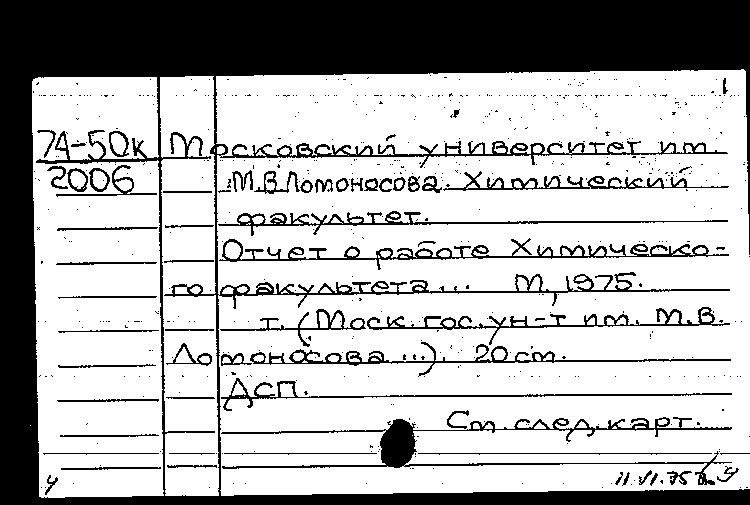 1
74-50к Московский университет им.
2006 М.В.Ломоносова. Химический
факультет.
Отчет о работе Химическо-
го факультета... М., 1975.
т. (Моск. гос. ун-т им. М.В.
Ломоносова...). 20 см.
ДСП.
См. след. карт.
11.VI.75